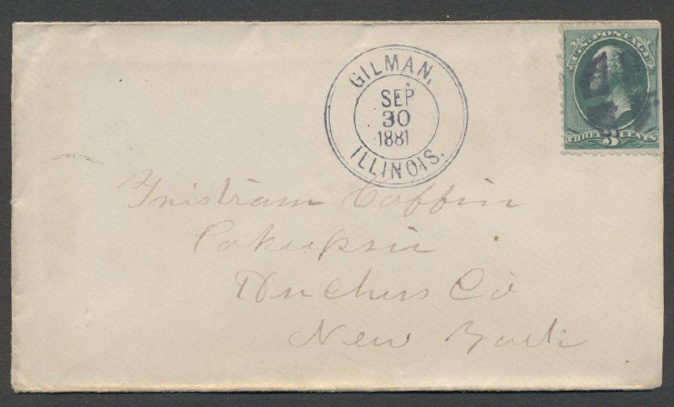 GILMAN,
SEP
30
1881
ILLINOIS.
U.S. POSTAGE
THREE 3 CENTS
Tristram Coffin
Pokupsie
Duchess Co
New York